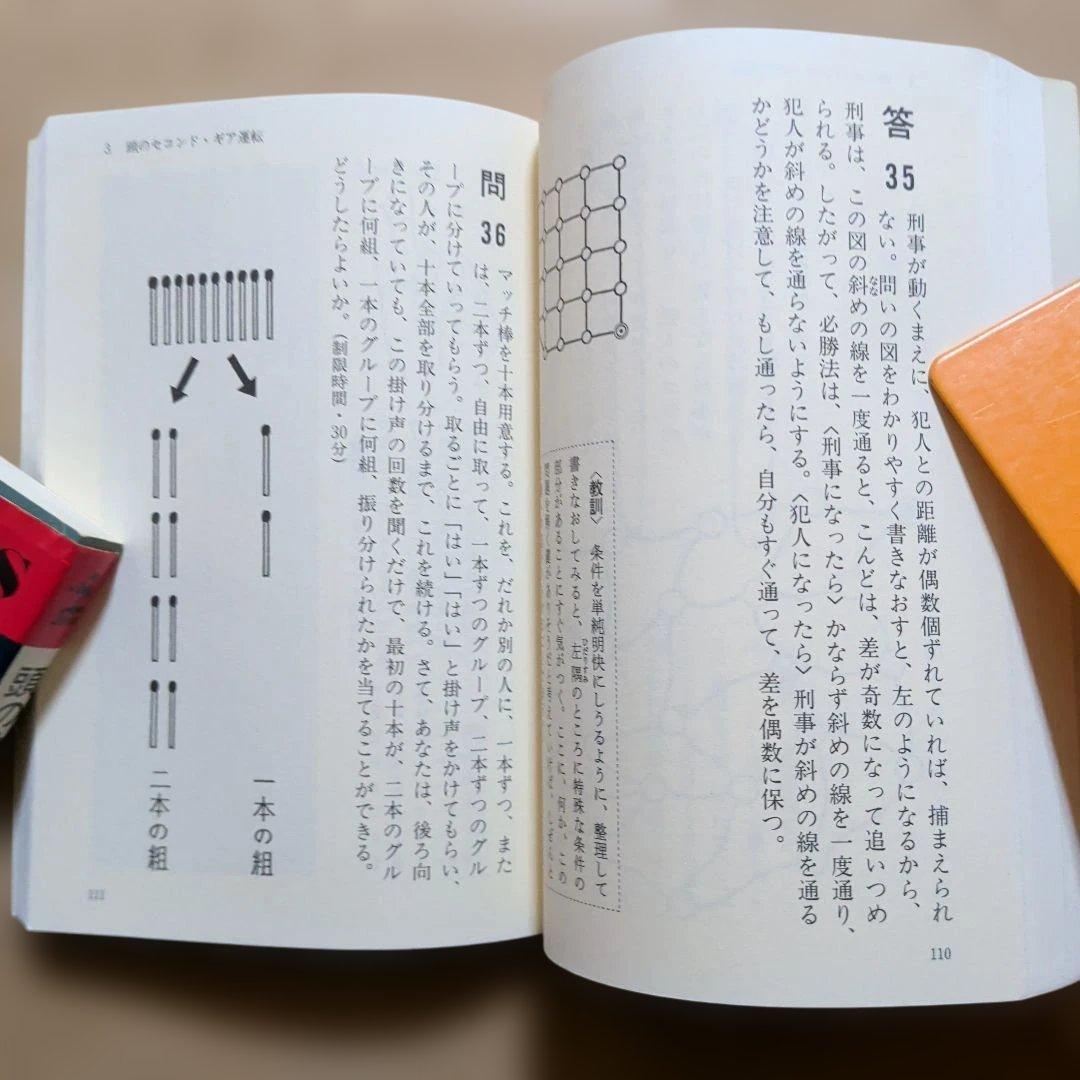 答 35
刑事が動くまえに、犯人との距離が偶数個ずれていれば、捕まえられ
ない。問いの図をわかりやすく書きなおすと、左のようになるから、
刑事は、この図の斜めの線を一度通ると、こんどは、差が奇数になって追いつめ
なな
られる。したがって、必勝法は、〈刑事になったら〉かならず斜めの線を一度通り、
犯人が斜めの線を通らないようにする。〈犯人になったら〉刑事が斜めの線を通る
かどうかを注意して、もし通ったら、自分もすぐ通って、差を偶数に保つ。
〈教訓〉 条件を単純明快にしうるように、整理して
書きなおしてみると、左隅のところに特殊な条件の
ひだりすみ
部分があることにすぐ気がつく。ここに、何か、この
110
3 頭のセコンド・ギア運転
問 36
マッチ棒を十本用意する。これを、だれか別の人に、一本ずつ、また
は、二本ずつ、自由に取って、一本ずつのグループ、二本ずつのグル
ープに分けていってもらう。取るごとに「はい」「はい」と掛け声をかけてもらい、
その人が、十本全部を取り分けるまで、これを続ける。さて、あなたは、後ろ向
きになっていても、この掛け声の回数を聞くだけで、最初の十本が、二本のグル
ープに何組、一本のグループに何組、振り分けられたかを当てることができる。
どうしたらよいか。(制限時間・30分)
一本の組
二本の組
111
S
頭の